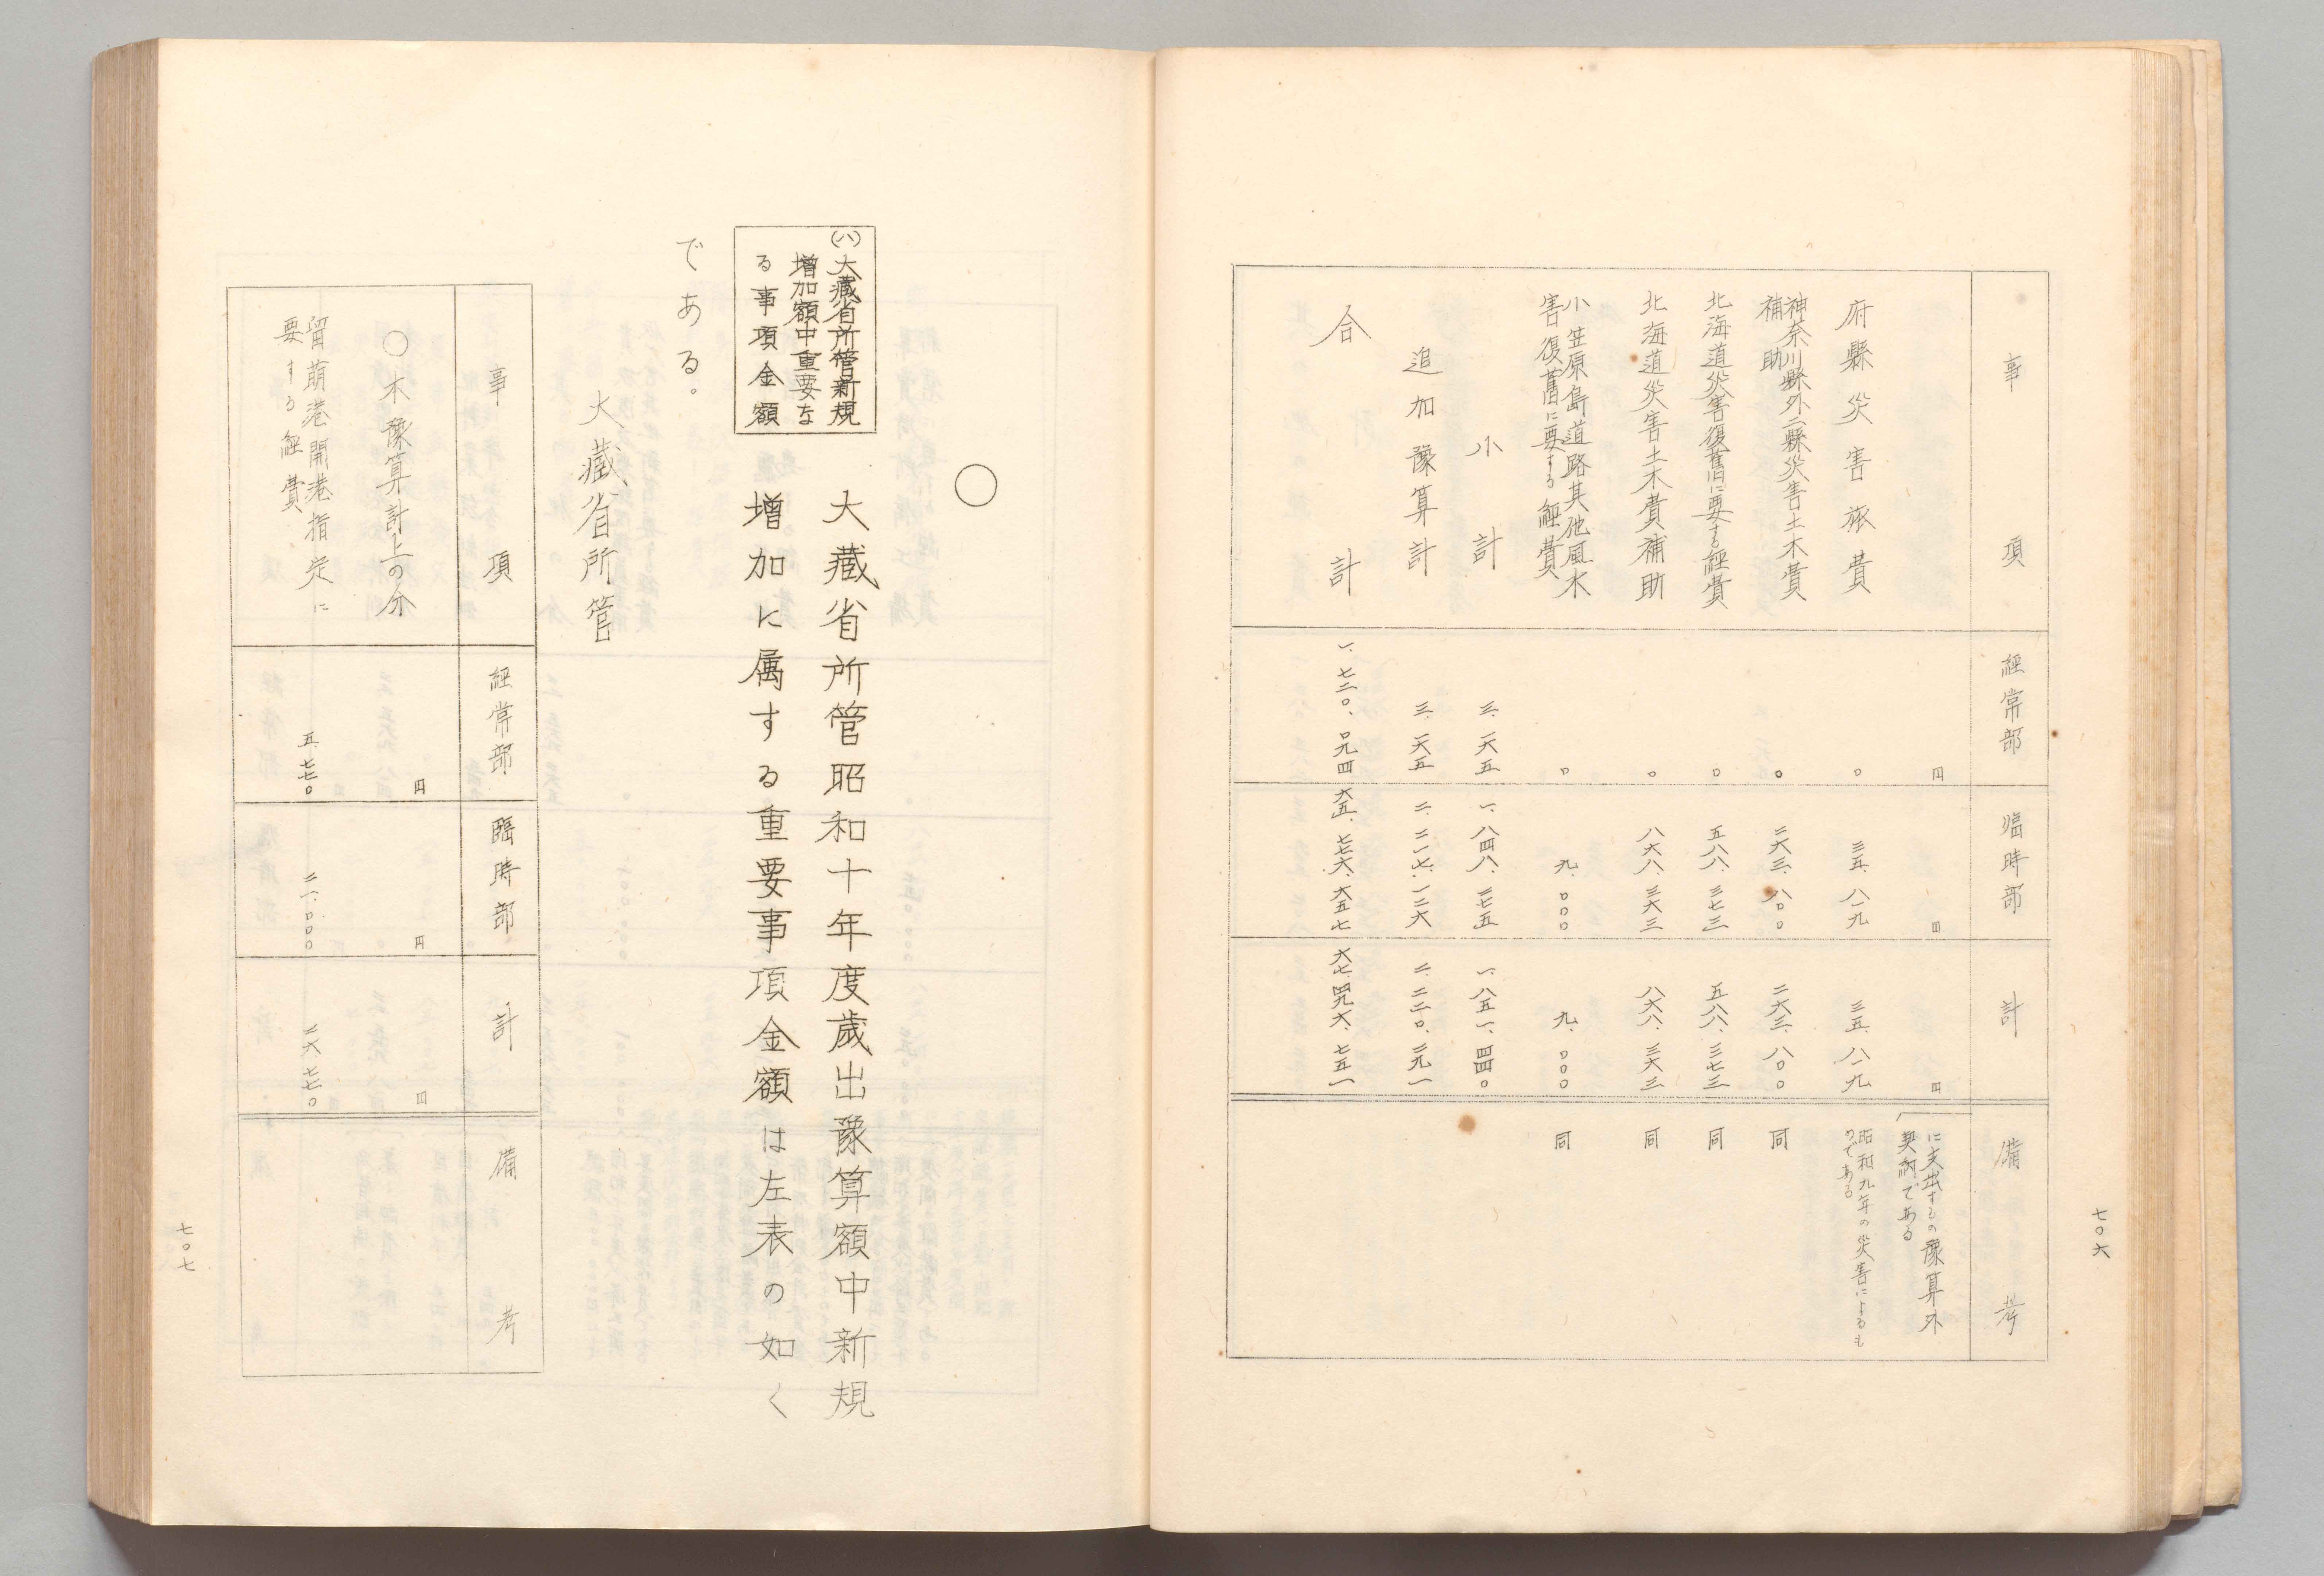 事項 經常部 臨時部 計 備考
円 円 円 に支出するもの豫算外
契約である
府縣災害旅費 〇 三五、八一九 三五、八一九 昭和九年の災害によるも
のである
神奈川縣外二縣災害土木費
補助 〇 二六三、八〇〇 二六三、八〇〇 同
北海道災害復舊に要する經費 〇 五八八、三七三 五八八、三七三 同
北海道災害土木費補助 〇 八六八、三六三 八六八、三六三 同
小笠原島道路其他風水
害復舊に要する經費 〇 九、〇〇〇 九、〇〇〇 同
小計 三、一六五 一、八四八、二七五 一、八五一、四四〇
追加豫算計 三、一六五 二、二一七、一二六 二、二二〇、二九一
合計 一、七二〇、〇九四 六五、七七六、六五七 六七、四九六、七五一
七〇六
〇
(八)大藏省所管新規
増加額中重要な
る事項金額
大藏省所管昭和十年度歲出豫算額中新規
増加に属する重要事項金額は左表の如く
である。
大藏省所管
事項 經常部 臨時部 計 備考
〇本豫算計上の分 円 円 円
留萌港開港指定に
要する經費 五、七七〇 二一、〇〇〇 二六、七七〇
七〇七